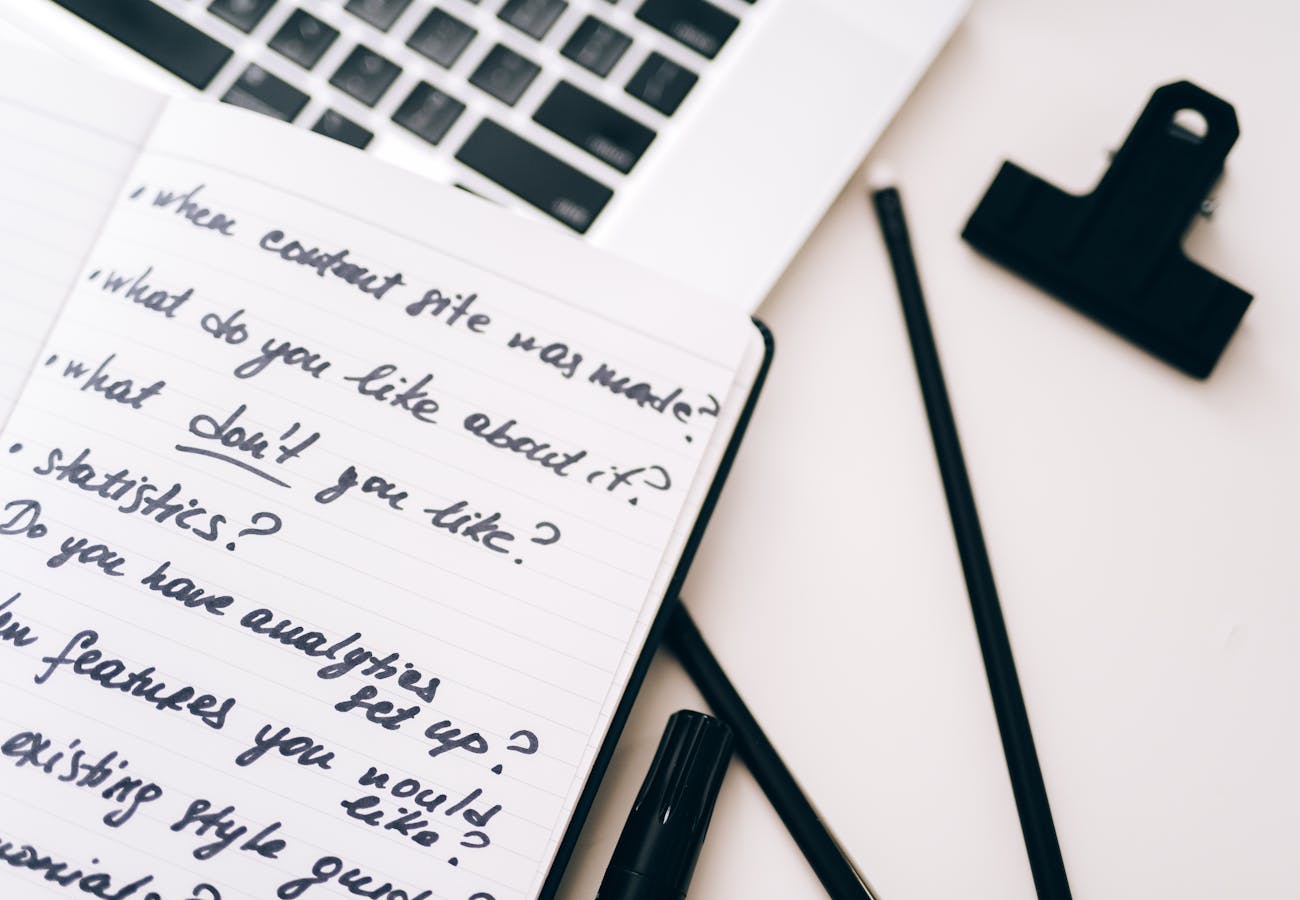 • when content site was made?
• what do you like about it?
• what don't you like?
• statistics?
Do you have analytics
set up?
features you would
like?
existing style guide?